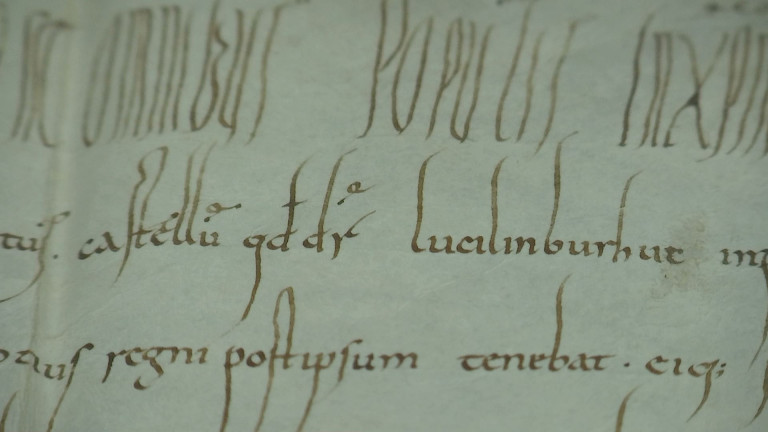 OMNIBUS POPULIS INXPI
castellū qđ dr̄ lucilinburhut
regni postipsum tenebat · eiq;